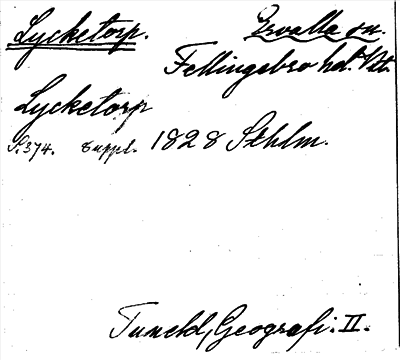 Lycketorp. Ervalla sn.
Fellingsbro hd. Vstm.
Lycketorp
S. 374. Suppl. 1828 Sthlm.
Tuneld, Geografi. II.